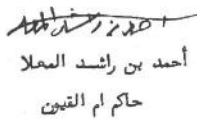 أحمد بن راشد المعلا
حاكم ام القيوين